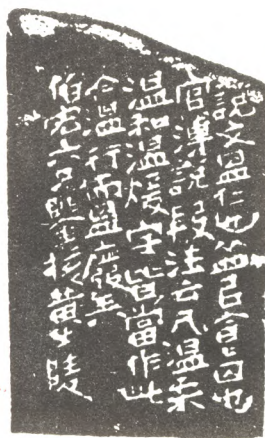 說文昷仁也从皿㠯食囚也
官溥說段注云凡溫柔
溫和溫煖字皆當作此
今溫行而昷廢矣
伯六兄鑒黃士陵